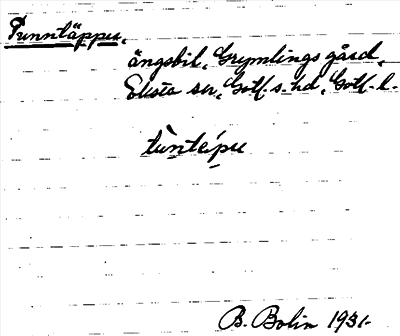 Tunntäppu,
ängsbit, Grymlings gård,
Eksta sn, Gotl. s. hd, Gotl. l.
tùnteípu
B. Bolin 1931.